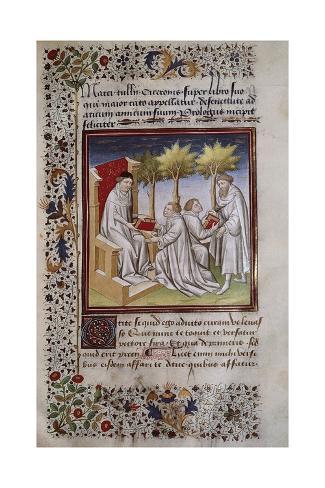 Marci tullij Ciceronis super libro suo
qui maior cato appellatur de senectute ad
aticum amicum suum Prologus incipit
feliciter
O tite si quid ego adiuto curam ve levas
se Que nunc te coquit et versat in
pectore fixa Et qua deprimeris
quid erit precii Licet enim michi versi
bus eisdem affari te attice quibus affatur